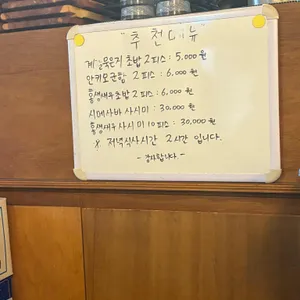 "추천메뉴"
묵은지 초밥 2피스 : 5,000원
안키모군함 2피스 : 6,000 원
생새우초밥 2피스 : 6,000 원
시메사바 사시미 : 30,000 원
생새우 사시미 10피스 : 30,000 원
※ 저녁식사시간 2시간 입니다.
- 감사합니다 -